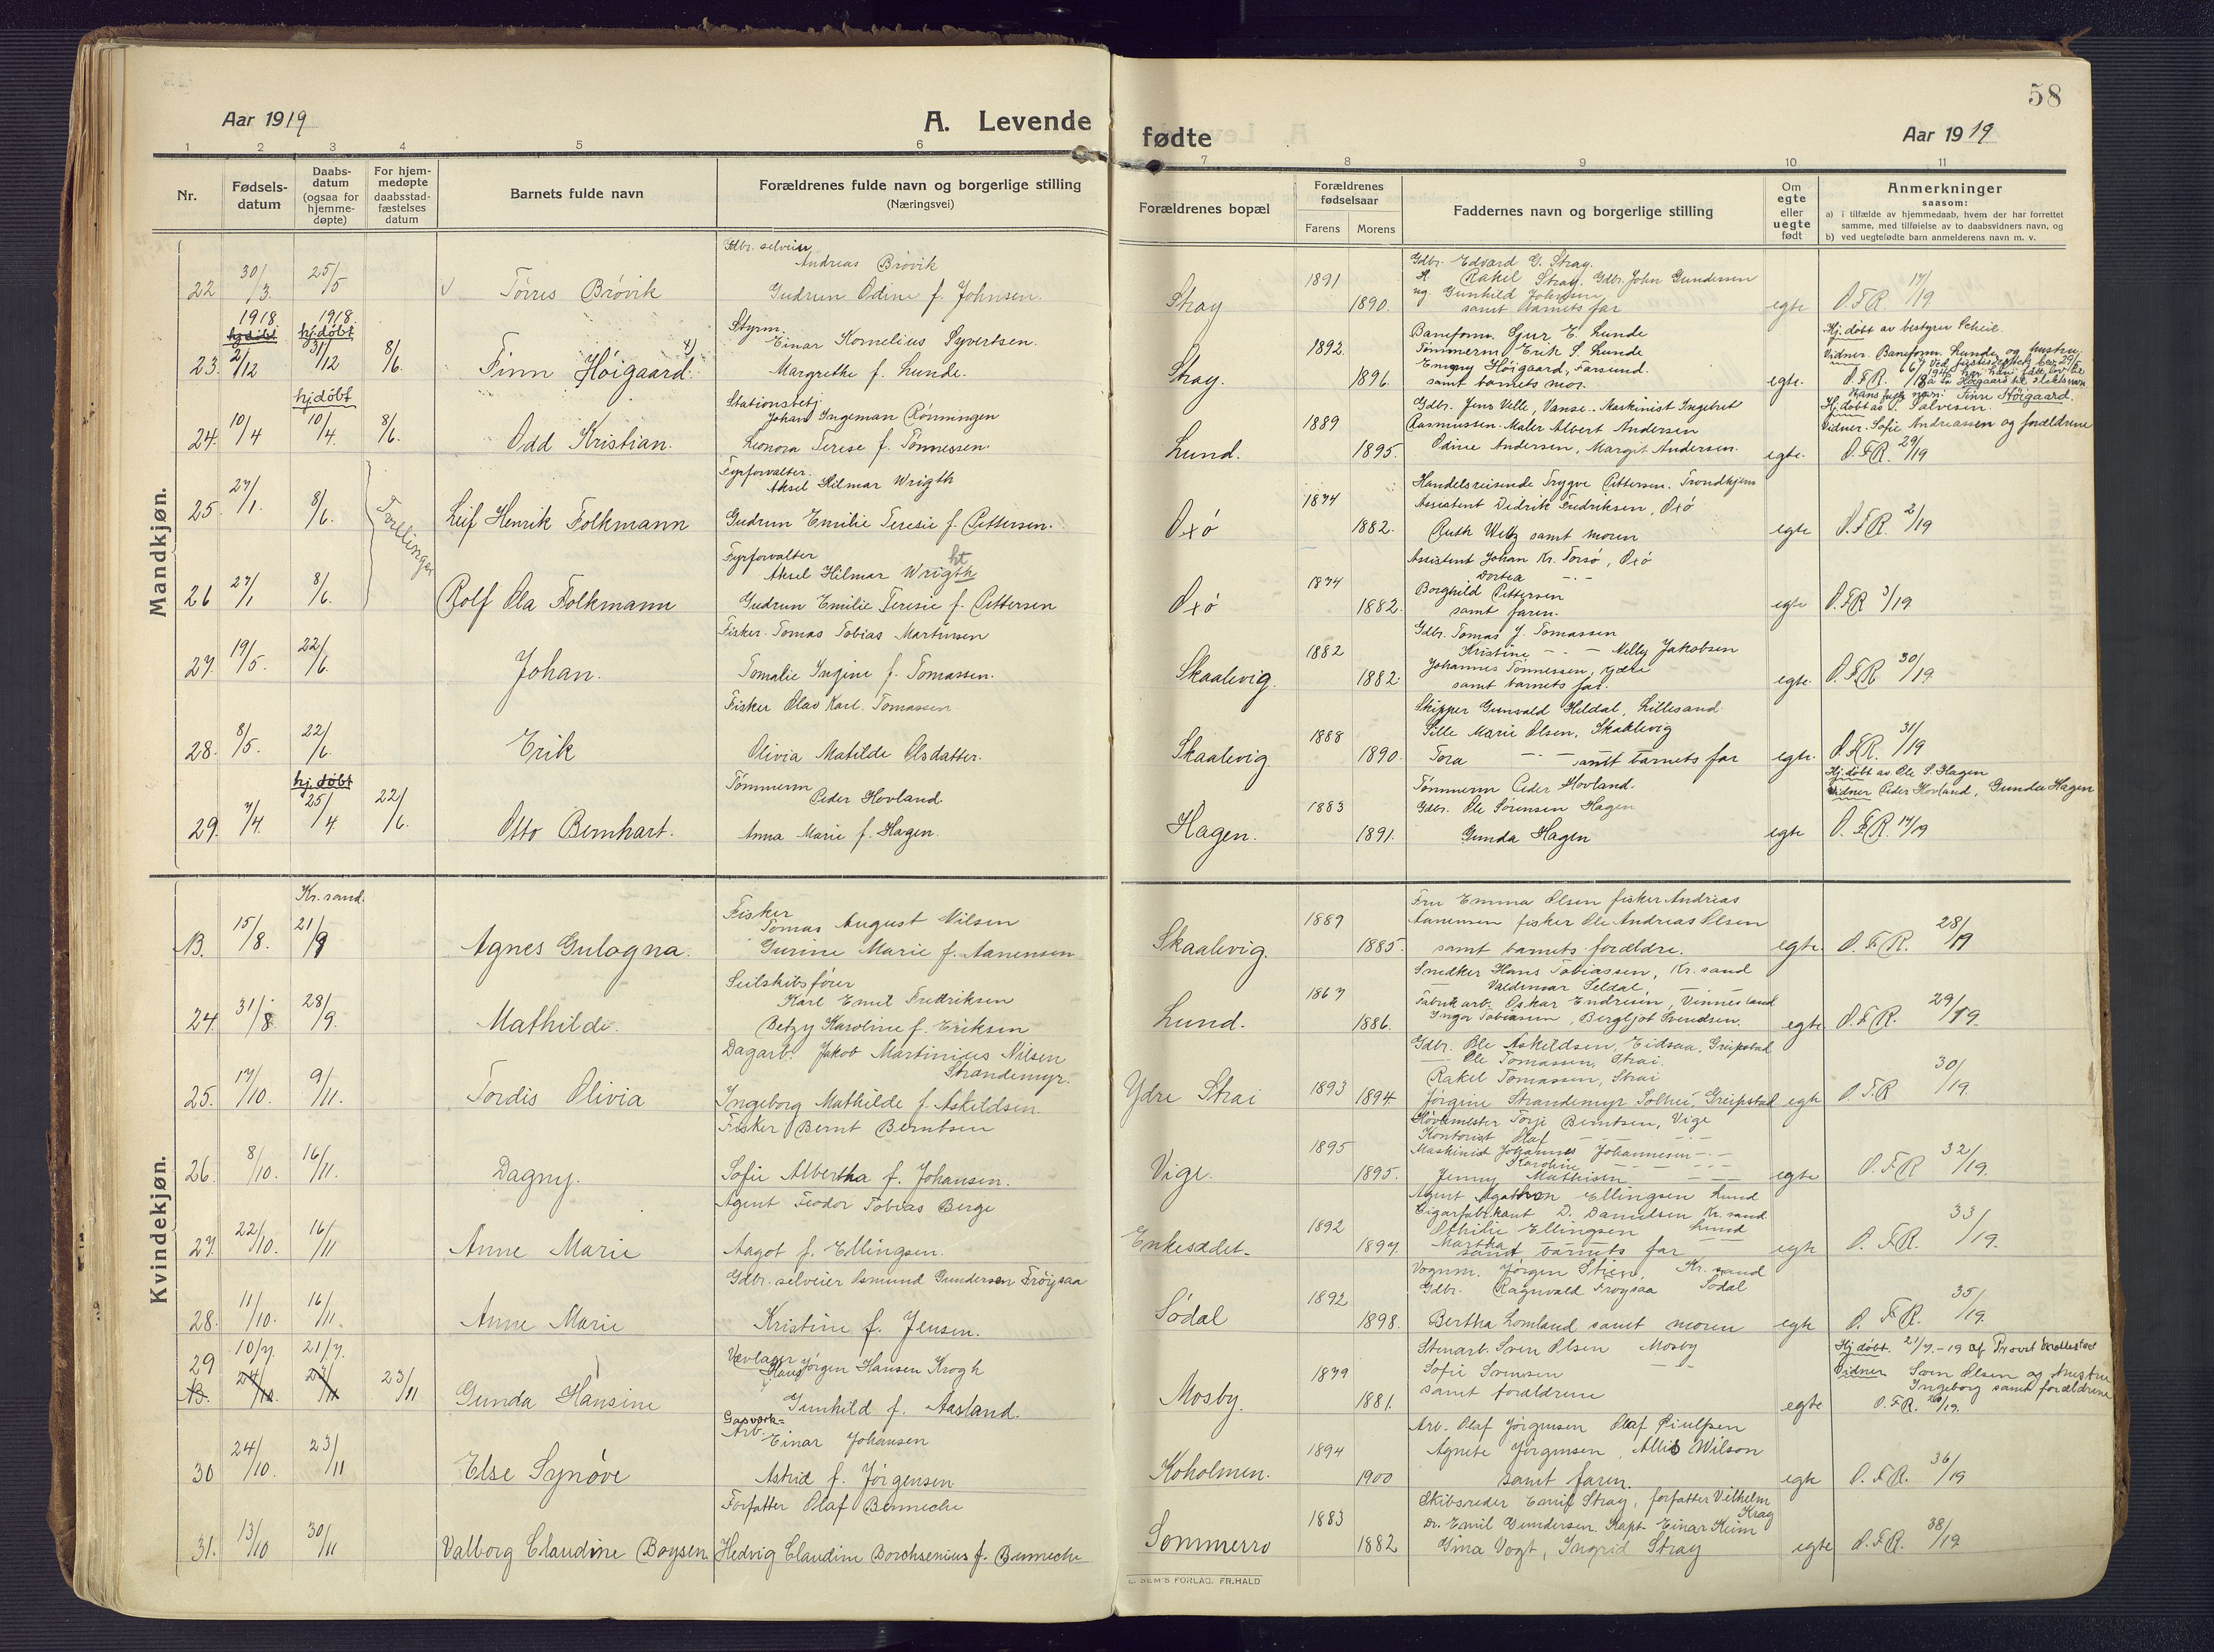 58
Aar 1919
A. Levende
fødte
Aar 1919
1 2 3 4 5 6 7 8 9 10 11
Nr.
Fødsels-
datum
Daabs-
datum
(ogsaa for
hjemme-
døpte)
For hjem-
medøpte
daabsstad-
fæstelses
datum
Barnets fulde navn
Forældrenes fulde navn og borgerlige stilling
(Næringsvei)
Forældrenes bopæl
Forældrenes
fødselsaar
Farens Morens
Faddernes navn og borgerlige stilling
Om
egte
eller
uegte
født
Anmerkninger
saasom:
a) i tilfælde av hjemmedaab, hvem der har forrettet
samme, med tilføielse av to daabsvidners navn, og
b) ved uegtefødte barn anmelderens navn m. v.
Mandkjøn.
22 30/3. 25/5 Tørres Brøvik
Gdbr. selveier
Andreas Brøvik
Gudrun Odine f. Johnsen.
Stray 1891 1890.
Gdbr. Edvard G. Stray.
Rakel Stray. Gdbr. John Gundersen
ug. Gunhild Johnsen
samt barnets far
egte O.F.R. 17/19
1918. 1918.
hj.døbt hj.døbt
23. 2/12 31/12 8/6. Finn Høigaard
Styrm.
Einar Kornelius Syvertsen.
Margrethe f. Lunde.
Stray. 1892. 1896.
Baneform. Sjur E. Lunde
Tømmerm. Erik S. Lunde
Emmy Høigaard, Farsund.
samt barnets mor.
egte.
Hj.døbt av bestyrer Scheie.
Vidner. Baneform. Lunde og hustru
O.F.R.
Høigaard til slektsnavn
Hans fulde navn: Finn Høigaard.
hj.døbt
24. 10/4 10/4. 8/6. Odd Kristian.
Stationsbetj.
Johan Ingeman Rønningen
Leonora Terese f. Tønnessen.
Lund. 1889 1895.
Gdbr. Jens Velle, Vanse. Maskinist Ingebret
Rasmussen. Maler Albert Andersen
Odine Andersen, Margit Andersen.
egte.
Hj.døbt av S. Salvesen.
Vidner. Sofie Andreassen og forældrene
O.F.R. 29/19
25. 27/1. 8/6. Tvillinger Leif Henrik Folkmann
Fyrforvalter.
Aksel Hilmar Wrigth
Gudrun Emilie Teresie f. Pettersen.
Oxø 1874 1882.
Handelsreisende Trygve Pettersen. Trondhjem
Assistent Didrik Fredriksen, Oxø
Ruth Weltz samt moren
egte O.F.R. 2/19
26 27/1 8/6. Rolf Ola Folkmann
Fyrforvalter ht
Aksel Hilmar Wrigth
Gudrun Emilie Teresie f. Pettersen
Oxø 1874 1882.
Assistent Johan Kr. Torsø, Oxø
Dortea - -
Borghild Pettersen
samt faren.
egte O.F.R. 3/19
27. 19/5. 22/6. Johan.
Fisker. Tomas Tobias Martinsen
Tomalie Ingine f. Tomassen.
Skaalevig. 1882 1882.
Gdbr. Tomas J. Tomassen
Kristine - - Nelly Jakobsen
Johannes Tønnessen, Kjære
samt barnets far.
egte. O.F.R. 30/19
28. 8/5. 22/6. Erik
Fisker Olav Karl. Tomassen
Olivia Matilde Olsdatter.
Skaalevig 1888 1890.
Skipper Gunvald Hildal, Lillesand
Sille Marie Olsen, Skaalevig
Tora - - samt barnets far
egte. O.F.R. 31/19
hj.døbt
29. 7/4. 25/4. 22/6. Otto Bernhart.
Tømmerm
Peder Hovland.
Anna Marie f. Hagen.
Hagen. 1883 1891.
Tømmerm Peder Hovland.
Gdbr. Ole Sørensen Hagen
Gunda Hagen
egte
Hj.døbt av Ole S. Hagen
Vidner Peder Hovland, Gunda Hagen
O.F.R. 14/19
Kvindekjøn.
Kr.sand.
15/8. 21/9 Agnes Gulogna.
Fisker
Tomas August Nilsen
Gurine Marie f. Aanensen
Skaalevig. 1889 1885.
Fru Emma Olsen fisker Andreas
Aanensen fisker Ole Andreas Olsen
samt barnets forældre.
egte. O.F.R. 28/19
24. 31/8 28/9. Mathilde.
Seilskibsfører
Karl Emil Fredriksen
Betzy Karoline f. Eriksen
Lund. 1867 1886.
Snedker Hans Tobiassen, Kr.sand
Valdemar Seldal,
Fabrikarb. Oskar Endresen, Vennesland
Inga Tobiassen, Bergljot Svendsen.
egte O.F.R. 29/19.
25. 17/10. 9/11. Tordis Olivia
Dagarb. Jakob Martinius Nilsen
Strandemyr.
Ingeborg Mathilde f. Askildsen.
Ydre Strai 1893 1894
Gdbr. Ole Askildsen, Eidsaa, Greipstad
Ole Tomassen, Strai.
Rakel Tomassen, Strai
Jørgine Strandemyr Solhei Greipstad
egte O.F.R 30/19.
26. 8/10. 16/11. Dagny.
Fisker Bernt Berntsen
Sofie Albertha f. Johansen.
Vige. 1895 1895.
Hovemester Torje Berntsen, Vige
Kontorist Olaf - -
Maskinist Johannes Johannesen - -
Karoline - -
Jenny Mathisen
egte O.F.R 32/19.
27. 22/10. 16/11 Anne Marie
Agent Feodor Tobias Berge
Aagot f. Ellingsen.
Enkesædet. 1892 1897.
Agent Agathon Ellingsen Lund
Cigarfabrikant D. Danielsen Kr.sand
Othilie Ellingsen Lund
Martha
samt barnets far
egte O.F.R. 33/19.
28. 11/10. 16/11. Anne Marie
Gdbr. selveier Osmund Gundersen Frøysaa
Kristine f. Jensen.
Sødal 1892 1898.
Vognm. Jørgen Stien, Kr.sand
Gdbr. Ragnvald Frøysaa Sødal
Bertha Lomland samt moren
egte O.F.R. 35/19.
29 10/7. 21/7. 23/11 Gunda Hansine
Hans Jørgen Hansen Krogh
Gunhild f. Aasland.
Mosby. 1879 1881.
Stenarb. Sven Olsen Mosby
Sofie Svensen - -
samt forældrene
egte
Hj.døbt. 21/7.-19 af Provst
Vidner Sven Olsen og hustru
Ingeborg samt forældrene
O.F.R.
30 24/10. 23/11 Else Synøve
Gasverk-
Arb. Einar Johansen
Astrid f. Jørgensen
Koholmen. 1894 1900
Arb. Olaf Jørgensen Olaf
Agnete Jørgensen, Allis Wilson
samt faren.
egte O.F.R. 36/19
31. 13/10 30/11 Valborg Claudine Boysen
Forfatter Olaf Benneche
Hedvig Claudine Borchsenius f. Benneche
Sommerro 1883 1882
Skibsreder Emil Stray, forfatter Vilhelm
Krag
Dr. Emil Gundersen. Kapt. Einar Keim
Gina Vogt, Ingrid Stray
egte O.F.R. 38/19
E. SEM'S FORLAG, FR.HALD